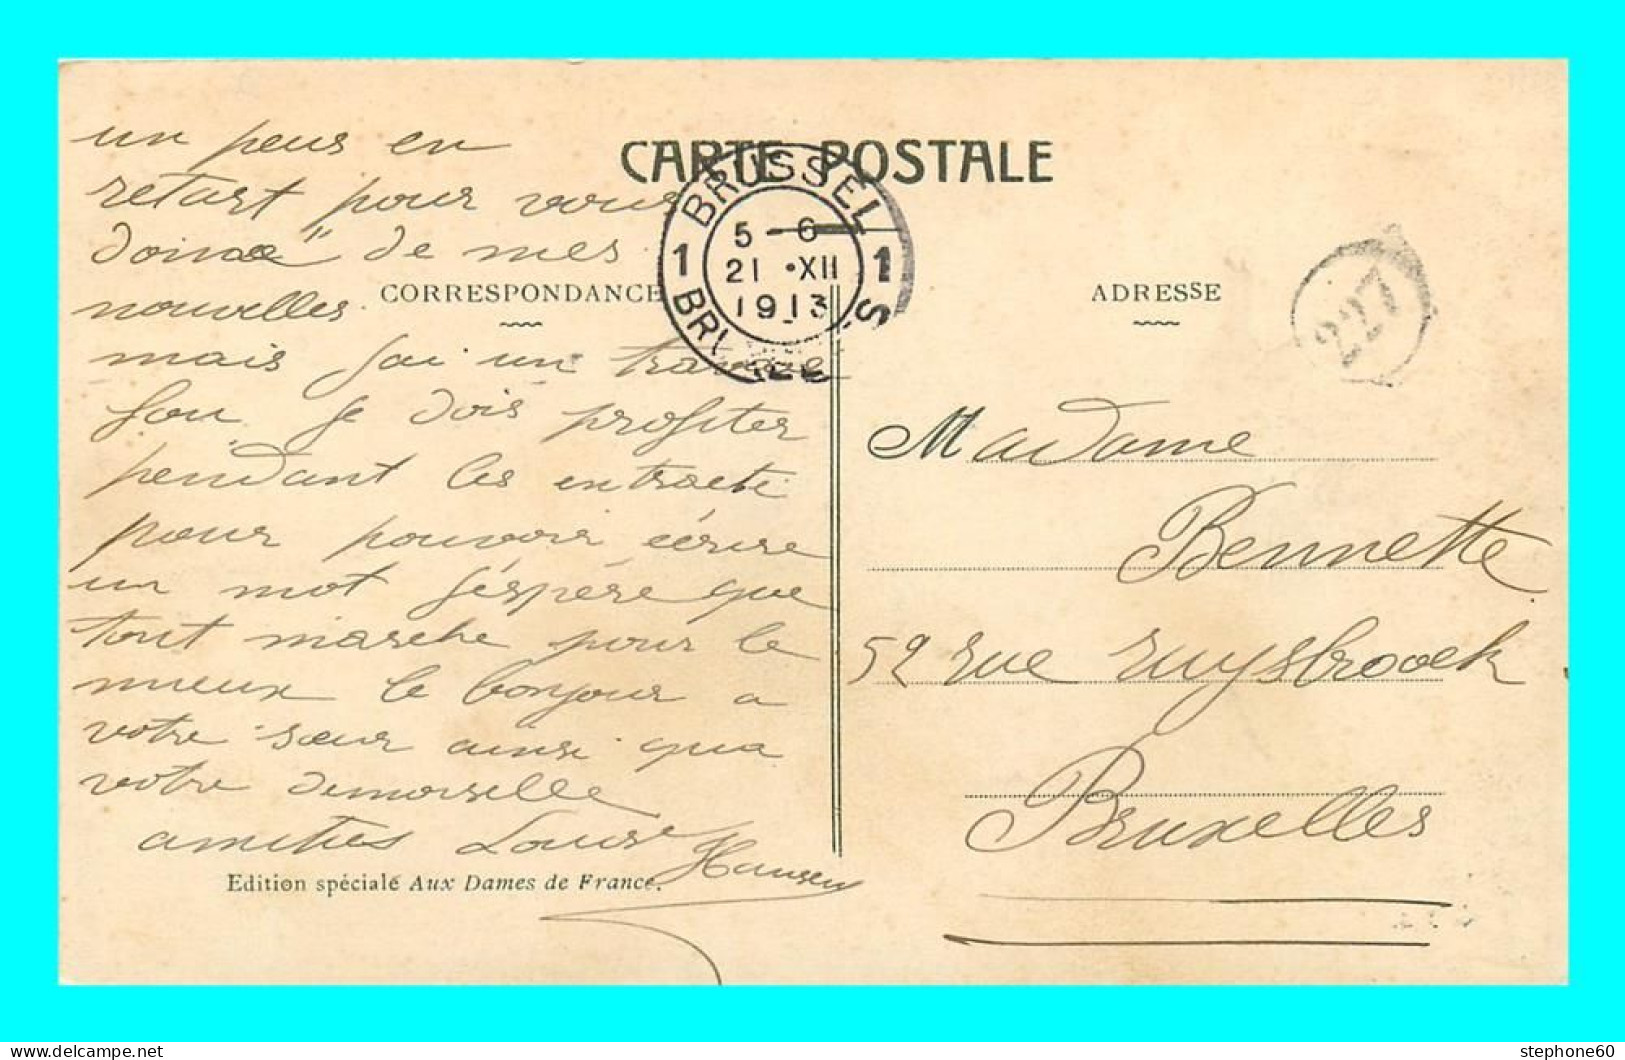 CARTE POSTALE
CORRESPONDANCE
un peus en
retart pour vous
de mes
nouvelles.
mais j'ai un travail
fou je dois profiter
pendant les entracte
pour pouvoir écrire
un mot j'éspére que
tout marche pour le
mieux le bonjour a
votre sœur ainsi qua
votre demoiselle
amities Louise
Hansen
Edition spéciale Aux Dames de France.
1 BRUSSEL 1
5-6
21 •XII
1913
ADRESSE
227
Madame
Bennette
52 rue ruysbroock
Bruxelles
delcampe.net
stephone60